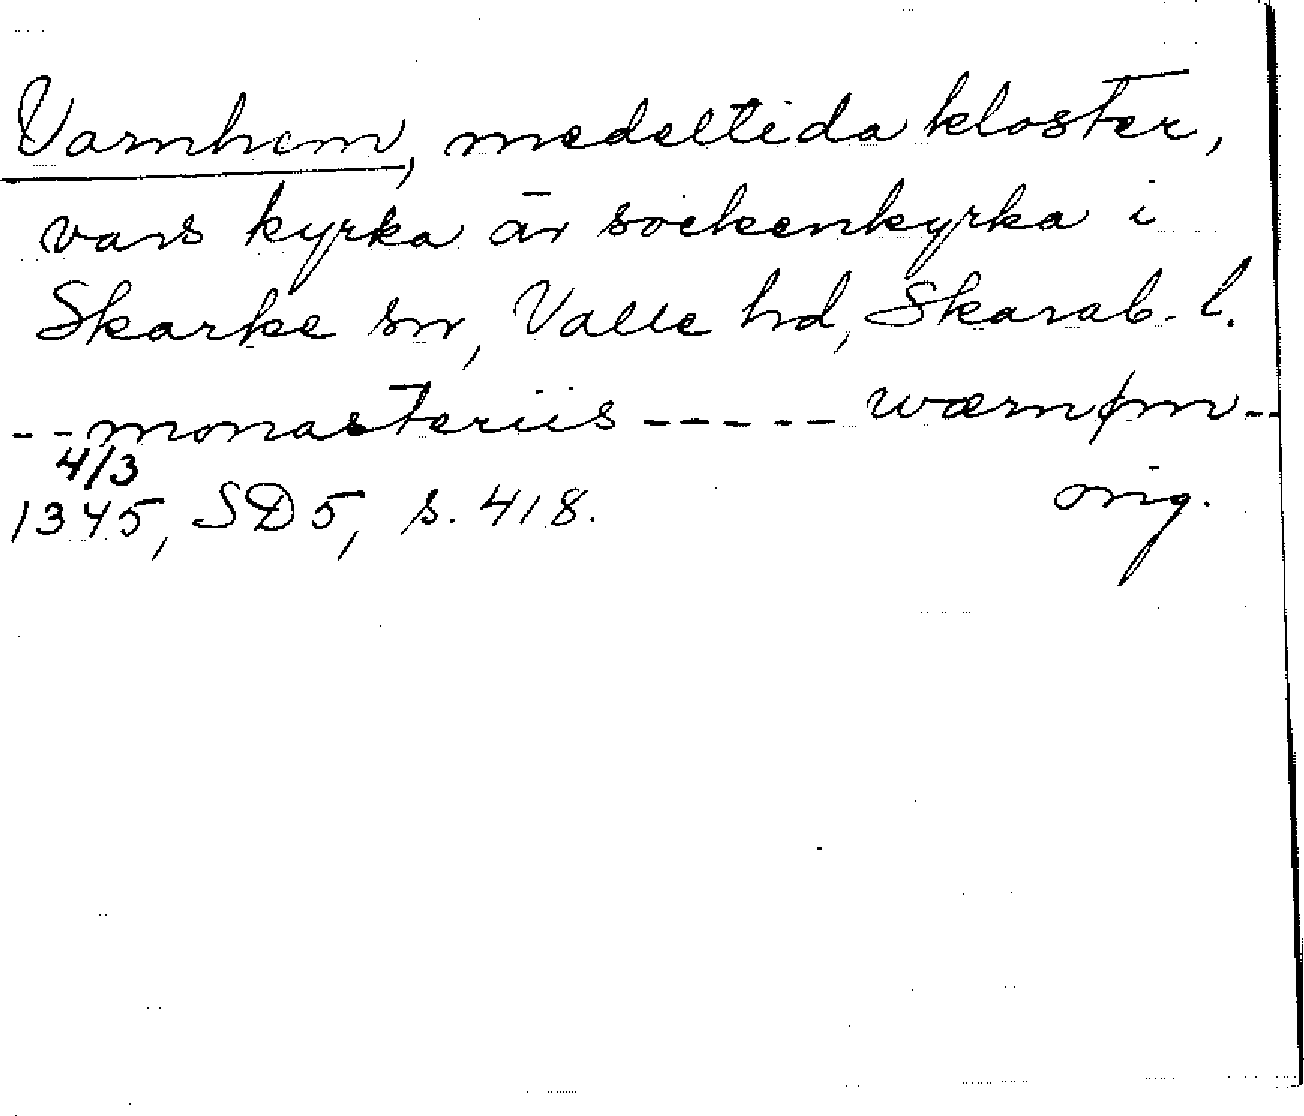 Varnhem, medeltida kloster,
vars kyrka är sockenkyrka i
Skarke sn, Valle hd, Skarab. l.
--monasteriis ----- wærnøm--
4/3
1345, SD5, s. 418. orig.